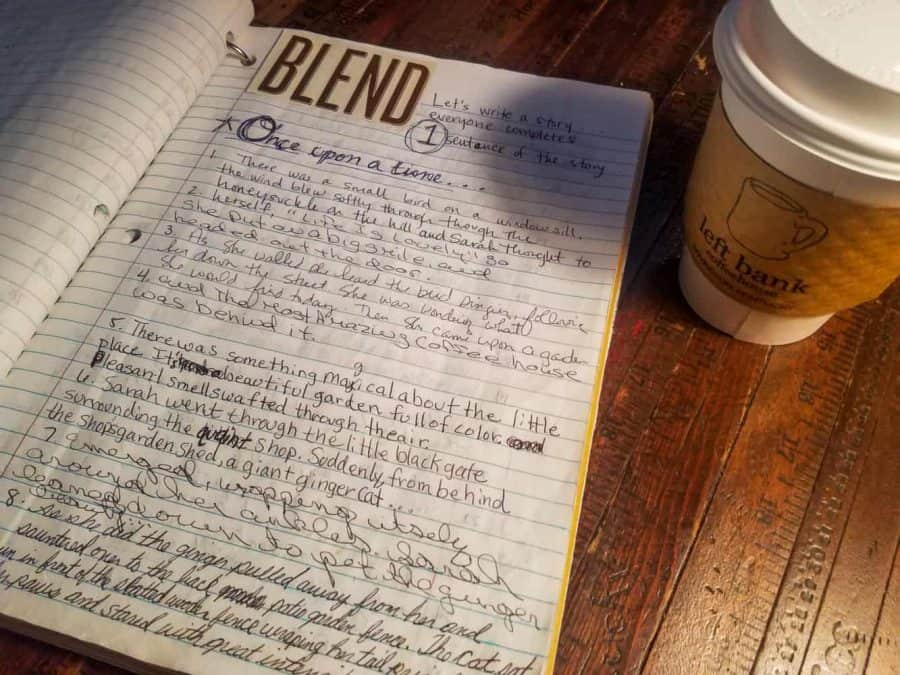 BLEND
Let's write a story
everyone completes
1 sentence of the story
Once upon a time....
1. There was a small bird on a windowsill.
the wind blew softly through though the
honeysuckle on the hill and Sarah thought to
herself, "Life is lovely" so
2. She put on a big smile and
headed out the door.
3. As she walked she heard the bird singing,
down the street she was wondering what
She would find today. Then she came upon a garden
4. and the most Amazing Coffee house
was behind it.
5. There was something magical about the little
place. It a beautiful garden full of color
Pleasant smells wafted through the air.
6. Sarah went through the little black gate
surrounding the quaint shop. Suddenly, from behind
the shops garden shed, a giant ginger cat ...
7. emerged, wrapping itself
around her ankles. Sarah
leaned down to pet the ginger
8. As she did the ginger pulled away from her and
sauntered over to the back patio garden fence. The cat sat
in front of the fence wrapping his tail
paws and stared with great
left bank
coffeehouse